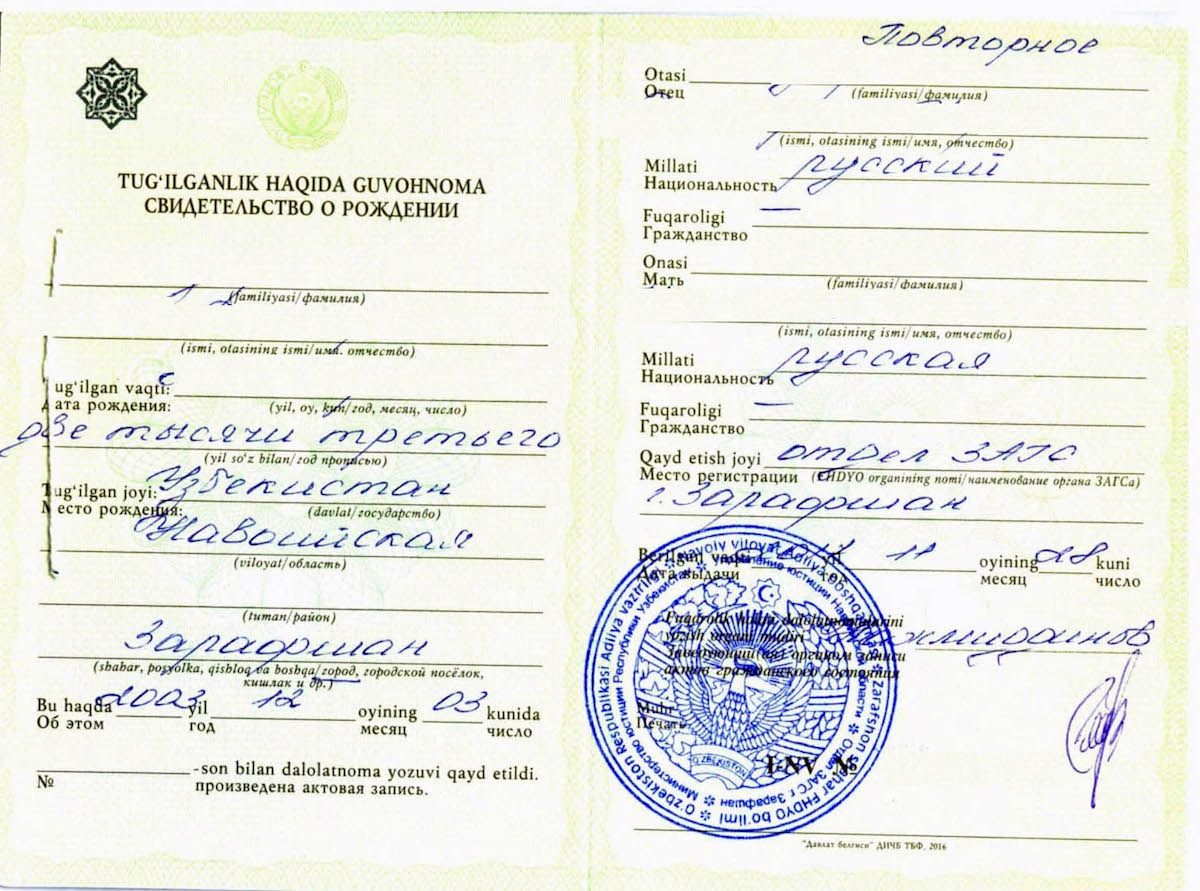 TUG‘ILGANLIK HAQIDA GUVOHNOMA
СВИДЕТЕЛЬСТВО О РОЖДЕНИИ
(familiyasi/фамилия)
(ismi, otasining ismi/имя, отчество)
ug‘ilgan vaqti:
ата рождения:
(yil, oy, kun/год, месяц, число)
две тысячи третьего
(yil so‘z bilan/год прописью)
Tug‘ilgan joyi: Узбекистан
Место рождения: (davlat/государство)
Навоийская
(viloyat/область)
(tuman/район)
Зарафшан
(shahar, posyolka, qishloq va boshqa/город, городской посёлок,
кишлак и др.)
Bu haqda 2003 yil 12 oyining 03 kunida
Об этом год месяц число
-son bilan dalolatnoma yozuvi qayd etildi.
№ произведена актовая запись.
Повторное
Otasi
Отец (familiyasi/фамилия)
(ismi, otasining ismi/имя, отчество)
Millati русский
Национальность
Fuqaroligi —
Гражданство
Onasi
Мать (familiyasi/фамилия)
(ismi, otasining ismi/имя, отчество)
Millati русская
Национальность
Fuqaroligi —
Гражданство
Qayd etish joyi отдел ЗАГС
Место регистрации (FHDYO organining nomi/наименование органа ЗАГСа)
г. Зарафшан
Berilgan vaqti yil 11 oyining 28 kuni
Дата выдачи год месяц число
Fuqarolik holati dalolatnomalarini
yozish organi mudiri
Заведующий(ая) органом записи
актов гражданского состояния
Muhr
Печать
O‘ZBEKISTON
I-NV №
"Давлат белгиси" ДИЧБ ТБФ, 2016